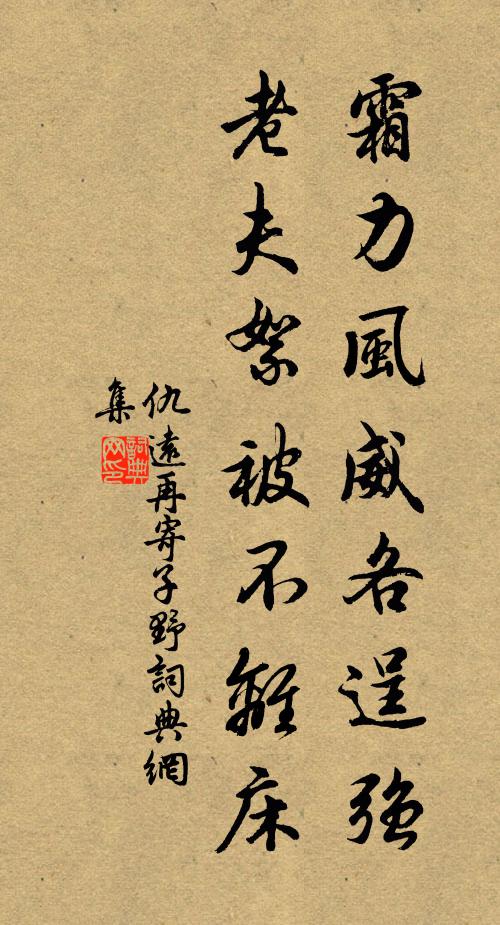 霜力風威各逞強
老夫絮被不離床
仇遠再寄子野詞典網
集
詞典网印